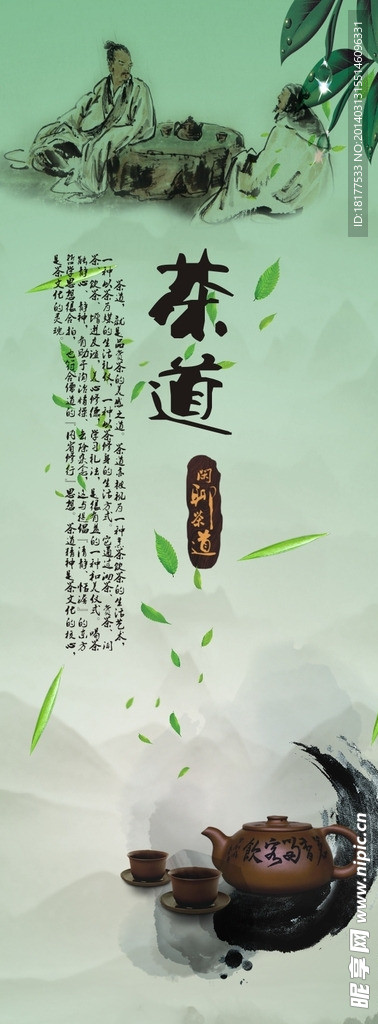 茶道
闲聊茶道
茶道，就是品赏茶的美感之道。茶道亦被视为一种烹茶饮茶的生活艺术，
一种以茶为媒的生活礼仪，一种以茶修身的生活方式。它通过沏茶、赏茶、闻
茶、饮茶、增进友谊，美心修德，学习礼法，是很有益的一种和美仪式。喝茶
能静心、静神，有助于陶冶情操、去除杂念，这与提倡“清静、恬澹”的东方
哲学思想很合拍，也符合佛道的“内省修行”思想。茶道精神是茶文化的核心，
是茶文化的灵魂
ID:18177533 NO:20140313155146096331
昵享网 www.nipic.cn